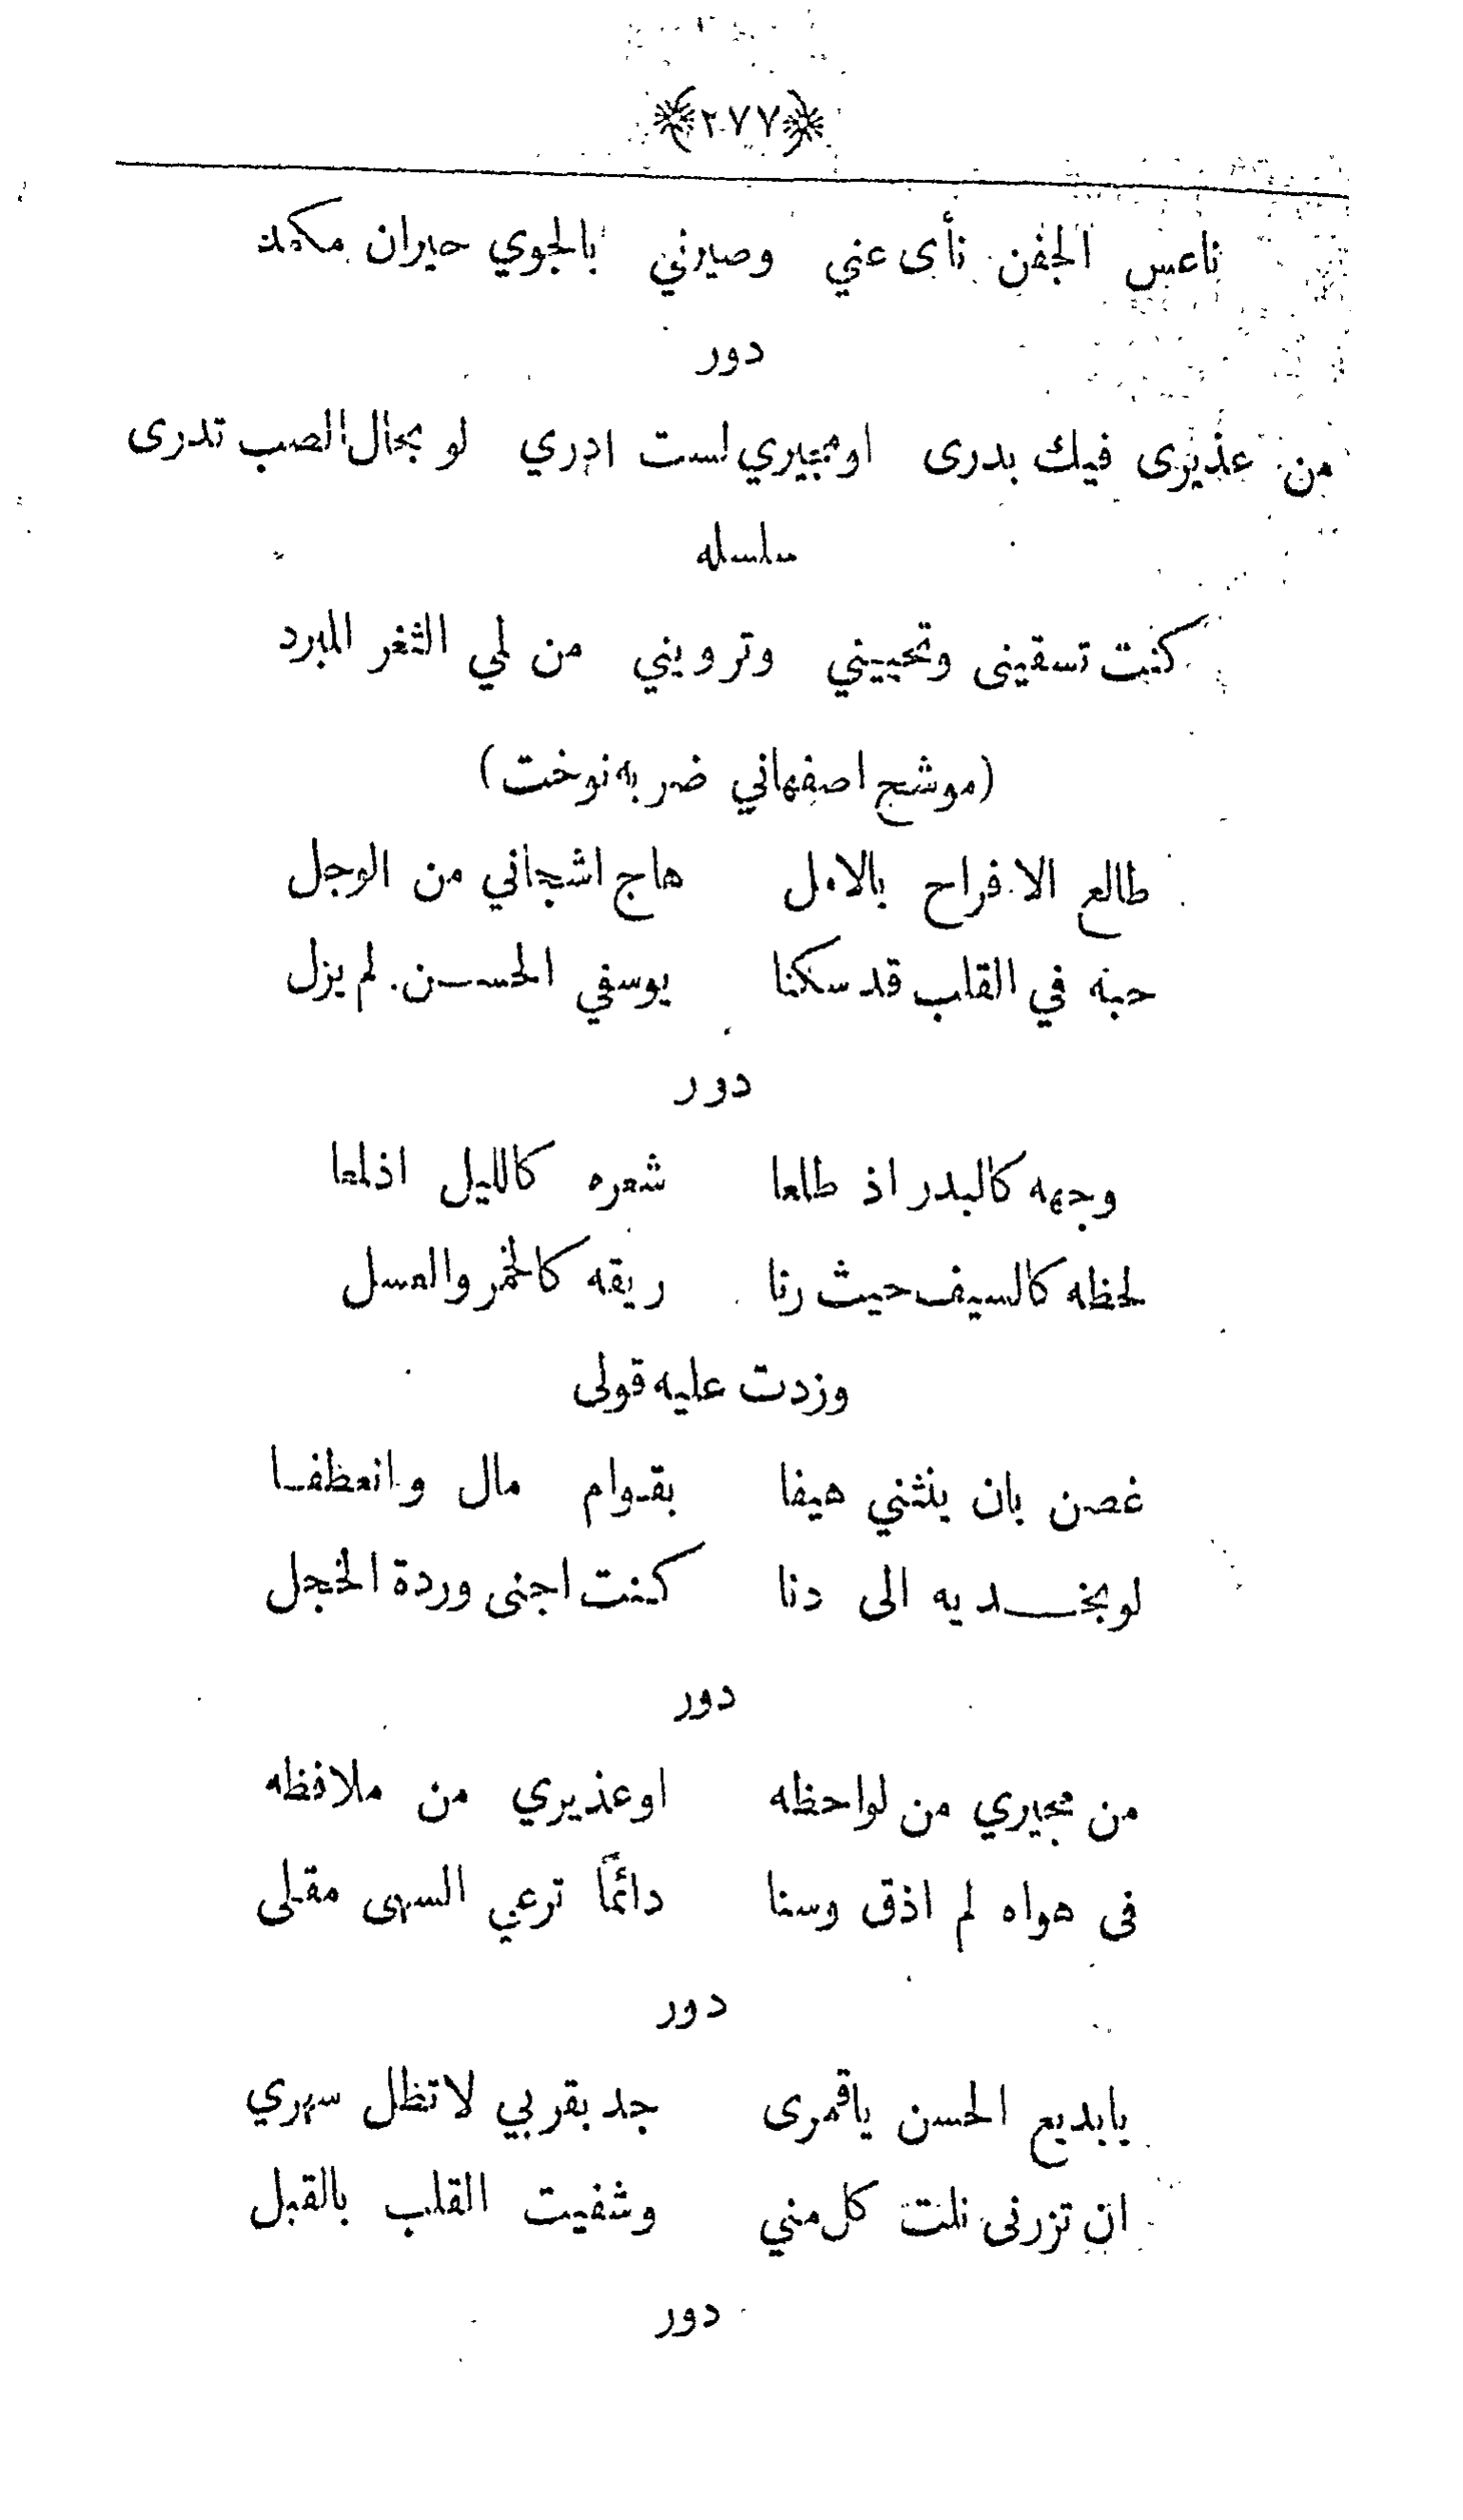 ﴿٢٧٧﴾
ناعس الجفن نأى عني وصيرني بالجوي حيران مكمد
دور
من عذيرى فيك بدرى او مجيري لست ادري لو بحال الصب تدرى
سلسله
كنت تسقينى وتحييني وترويني من لمي الثغر المبرد
(موشح اصفهاني ضربه نوخت)
طالع الافراح بالامل هاج اشجاني من الوجل
حبه في القلب قد سكنا يوسفي الحسن لم يزل
دور
وجهه كالبدر اذ طلعا شعره كالليل اذلمعا
لحظه كالسيف حيث رنا ريقه كالخمر والعسل
وزدت عليه قولى
غصن بان ينثني هيفا بقوام مال وانعطفا
لو بخديه الى دنا كنت اجنى وردة الخجل
دور
من مجيري من لواحظه او عذيري من ملافظه
فى هواه لم اذق وسنا دائمًا ترعي السهى مقلى
دور
يابديع الحسن ياقمرى جد بقربي لا تطل سهري
ان تزرنى نلت كل مني وشفيت القلب بالقبل
دور